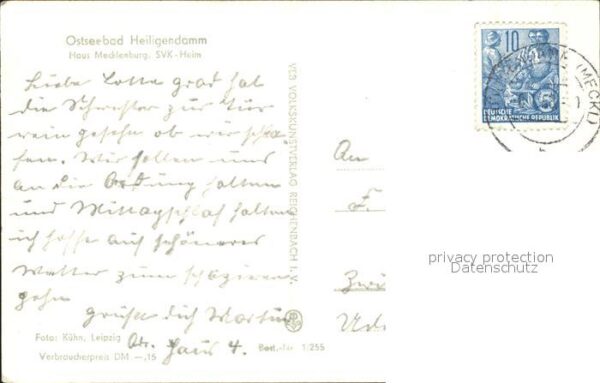 Ostseebad Heiligendamm
Haus Mecklenburg, SVK-Heim
Liebe Lotte grad hat
die Schwester zur Tür
rein gesehn ob wir schla
fen. Wir sollen uns
an die Ordnung halten
und Mittagschlaf halten
ich hoffe auf schöneres
Wetter zum spazieren
gehn
grüßt dich Martin
Haus 4.
Foto: Kühn, Leipzig
Best.-Nr. 1/255
Verbraucherpreis DM —,15
VEB VOLKSKUNSTVERLAG REICHENBACH I. V.
10
5
DEUTSCHE
DEMOKRATISCHE REPUBLIK
(MECKL)
An
F.
privacy protection
Datenschutz